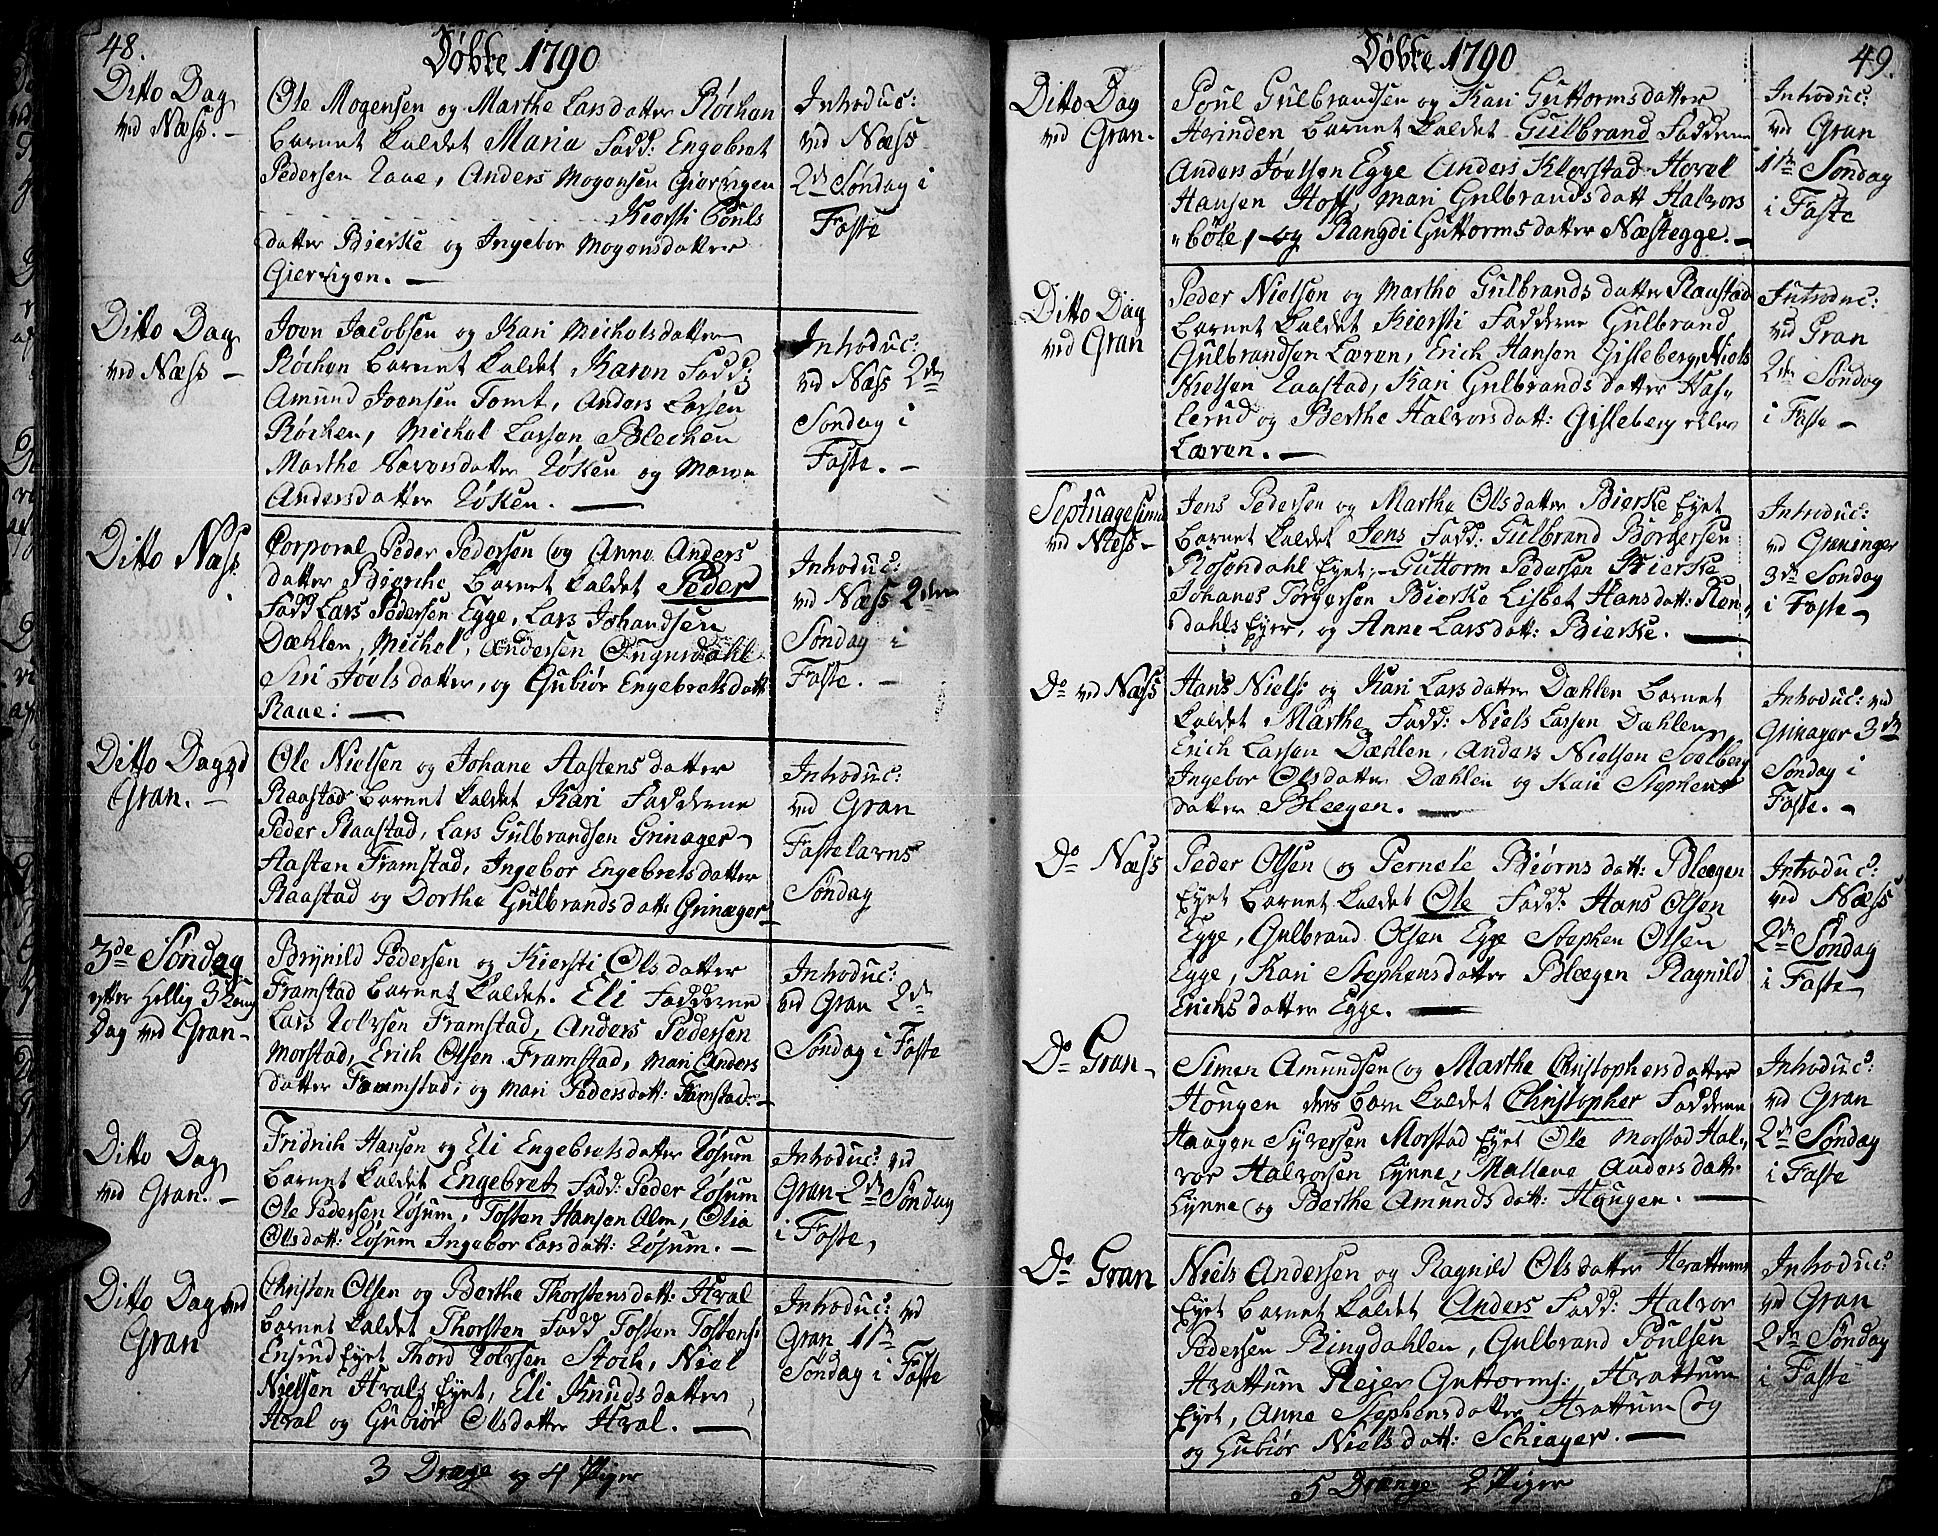 48.
Døbte 1790
Ditto Dag
ved Næss. —
Ole Mogensen og Marthe Larsdatter Røchen
barnet kaldet Maria Fadd: Engebret
Pedersen Raae, Anders Mogensen Giersigen
Kiersti Pouls
datter Bierke og Ingebor Mogensdatter
Giersigen. —
Introduc:
ved Næss
2den Søndag i
Faste
Ditto Dag
ved Næss —
Joen Jacobsen og Kari Michelsdatter
Røchen barnet kaldet Karen Fadd:
Amund Joensen Tomt, Anders Larsen
Røchen, Michel Larsen Blechen
Marthe Halvorsdatter Røken og Maren
Andersdatter Røken. —
Introduc:
ved Næss 2den
Søndag i
Faste. —
Ditto Næss
Corporal Peder Pedersen og Anne Anders
datter Bierche barnet kaldet Peder
Fadd Lars Pedersen Egge, Lars Johandsen
Dæhlen, Michel Andersen
Siri Joelsdatter, og Gubiør Engebretsdatt
Raae: —
Introduc:
ved Næss 2den
Søndag i
Faste. —
Ditto Dag vd
Gran. —
Ole Nielsen og Johane Aastensdatter
Raastad barnet kaldet Kari Fadderne
Peder Raastad, Lars Gulbrandsen Grinager
Aasten Framstad, Ingebor Engebretsdatter
Raastad og Dorthe Gulbrandsdatt: Grinager
Introduc:
ved Gran
Fastelavns
Søndag
3de Søndag
efter Hellig 3 Kong
Dag ved Gran —
Brynild Pedersen og Kiersti Olsdatter
Framstad barnet kaldet. Eli Fadderne
Lars Tolvsen Framstad, Anders Pedersen
Morstad, Erich Olsen Framstad, Mari Anders
datter Frammstad, og Mari Pedersdatt: Framstad. —
Introduc:
ved Gran 2den
Søndag i Faste
Ditto Dag
ved Gran. —
Fridrich Hansen og Eli Engebretsdatter Røsum
barnet kaldet Engebret Fadd: Peder Røsum
Ole Pedersen Røsum, Tosten Hansen Alm, Olia
Olsdatt: Røsum Ingebor Larsdatt: Røsum. —
Introduc: ved
Gran 2den Søndag
i Faste,
Ditto Dag ved
Gran
Christen Olsen og Berthe Thorstensdatt: Hval
barnet kaldet Thorsten Fadd Tosten Tostens:
Ensrud Eyet Thord Tolvsen Stoch, Niel
Nielsen Hvals Eyet, Eli Knudsdatter
Hval og Gubiør Olsdatter Hval. —
Introduc: ved
Gran 1ste
Søndag i Faste
3 Drænge og 4 Piger
Døbte 1790
49.
Ditto Dag
ved Gran. —
Poul Gulbrandsen og Kari Guttormsdatter
Hvinden barnet kaldet Gulbrand Fadderne
Anders Joelsen Egge Anders Klorstad Hoval
Hansen Hoff, Mari Gulbrandsdatt Halvors
"böle, og Rangdi Guttormsdatter Næstegge. —
Introduc:
ved Gran
1ste Søndag
i Faste
Ditto Dag
ved Gran
Peder Nielsen og Marthe Gulbrandsdatter Raastad
barnet kaldet Kiersti Fadderne Gulbrand
Gulbrandsen Læren, Erich Hansen Gisleberg, Niels
Nielsen Raastad, Kari Gulbrandsdatter Has„
lerud og Berthe Halvorsdatt: Gisleberg eller
Læren. —
Introduc:
ved Gran
2den Søndag
i Faste —
Septuagesima
ved Næss —
Jens Pedersen og Marthe Olsdatter Bierke Eyet
barnet kaldet Jens Fadd: Gulbrand Borgersen
Rosendahl Eyet, Guttorm Pedersen Bierke
Johanes Torgersen Bierke Lisbet Hansdatt: Ron
dahls Eyer, og Anne Larsdatt: Bierke. —
Introduc:
ved Graninger
3die Søndag
i Faste —
Do ved Næss
Hans Niels: og Kari Larsdatter Dæhlen barnet
kaldet Marthe Fadd: Niels Larsen Dæhlen
Erich Larsen Dæhlen, Anders Nielsen Soelberg
Ingebor Olsdatter Dæhlen og Kari Stephens
datter Bleegen. —
Introduc: ved
Grinager 3die
Søndag i
Faste. —
Do Næss
Peder Olsen og Pernele Biørnsdatt: Bleegen
Eyet barnet kaldet Ole Fadd: Hans Olsen
Egge, Gulbrand Olsen Egge Stephen Olsen
Egge, Kari Stephensdatter Bleegen Ragnild
Erichsdatter Egge. —
Introduc:
ved Næss
2den Søndag
i Faste —
Do Gran —
Simen Amundsen og Marthe Christophersdatter
Hougen deres barn kaldet Christopher Fadderne
Haagen Syversen Morstad Eyet Ole Morstad Hal„
vor Halvorsen Lynne, Mallene Andersdatt:
Lynne og Berthe Amundsdatt: Hougen. —
Introduc:
ved Gran
2den Søndag
i Faste
Do Gran
Niels Andersen og Ragnild Olsdatter Hvattums
Eyet barnet kaldet Anders Fadd: Halvor
Pedersen Ringdahlen, Gulbrand Poulsen
Hvattum Rejer Guttorms: Hvattum
Eyet, Anne Stephensdatter Hvattum og
og Gubiør Nielsdatt: Schiager. —
Introduc:
ved Gran
2den Søndag
i Faste
5 Drænge 2 Piger